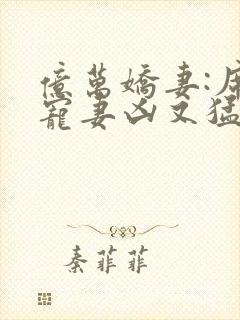 億萬嬌妻:
寵妻凶又猛
秦菲菲